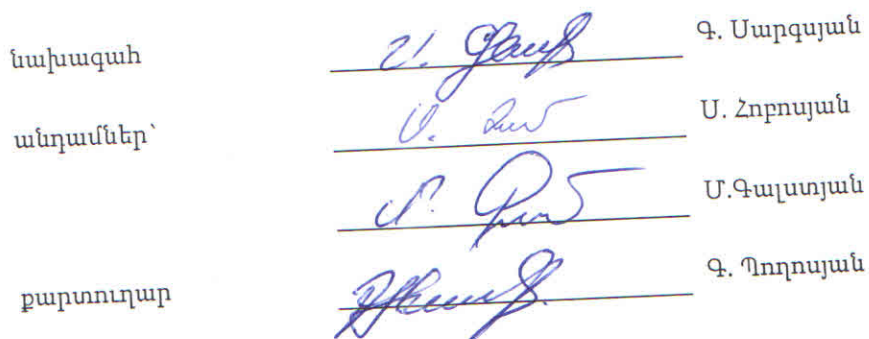 նախագահ Գ. Սարգսյան
անդամներ՝ Ս. Հոբոսյան
Մ.Գալստյան
քարտուղար Գ. Պողոսյան